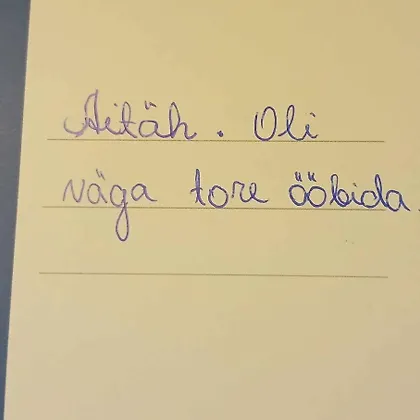 Aitäh. Oli
väga tore ööbida.